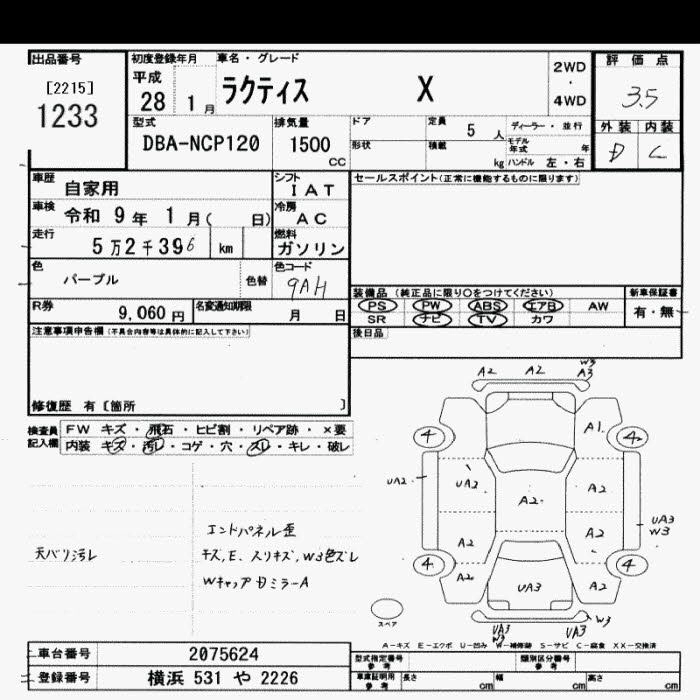 出品番号
[2215]
1233
初度登録年月
平成
28 1 月
車名・グレード
ラクティス X
2WD
・
4WD
評価点
3.5
外装 内装
D C
型式
DBA-NCP120
排気量
1500
CC
ドア
定員 5 人
ディーラー・並行
形状
積載
kg
モデル年式 年
ハンドル 左・右
車歴
自家用
シフト
IAT
車検
令和 9 年 1 月( 日)
冷房
AC
走行
5 万 2 千 396 km
燃料
ガソリン
色
パープル
色替
色コード
9AH
R券
9,060 円
名変通知期限
月 日
セールスポイント(正常に機能するものに限ります)
装備品 (純正品に限り○をつけてください)
新車保証書
PS PW ABS エアB AW
SR ナビ TV カワ
有・無
後日品
注意事項申告欄(不具合内容等は具体的に記入して下さい)
修復歴 有〔箇所 〕
検査員
記入欄
FW キズ・飛石・ヒビ割・リペア跡・×要
内装 キズ・汚レ・コゲ・穴・スレ・キレ・破レ
天バリ汚レ
エンドパネル歪
キズ,E、スリキズ、W3色ズレ
Wキャップ
ミラーA
A2
A2
W3
A3
4
4
A1
UA2
UA3
A2
A2
UA3
W3
A2
A2
4
4
A2
UA3
A2
スペア
UA3
W3
UA3
W3
A-キズ E-エクボ U-凹み W-補修跡 S-サビ C-腐食 XX-交換済
車台番号
2075624
登録番号
横浜 531 や 2226
型式指定番号
参考
類別区分番号
参考
車庫証明用
参考
長さ cm
幅 cm
高さ cm